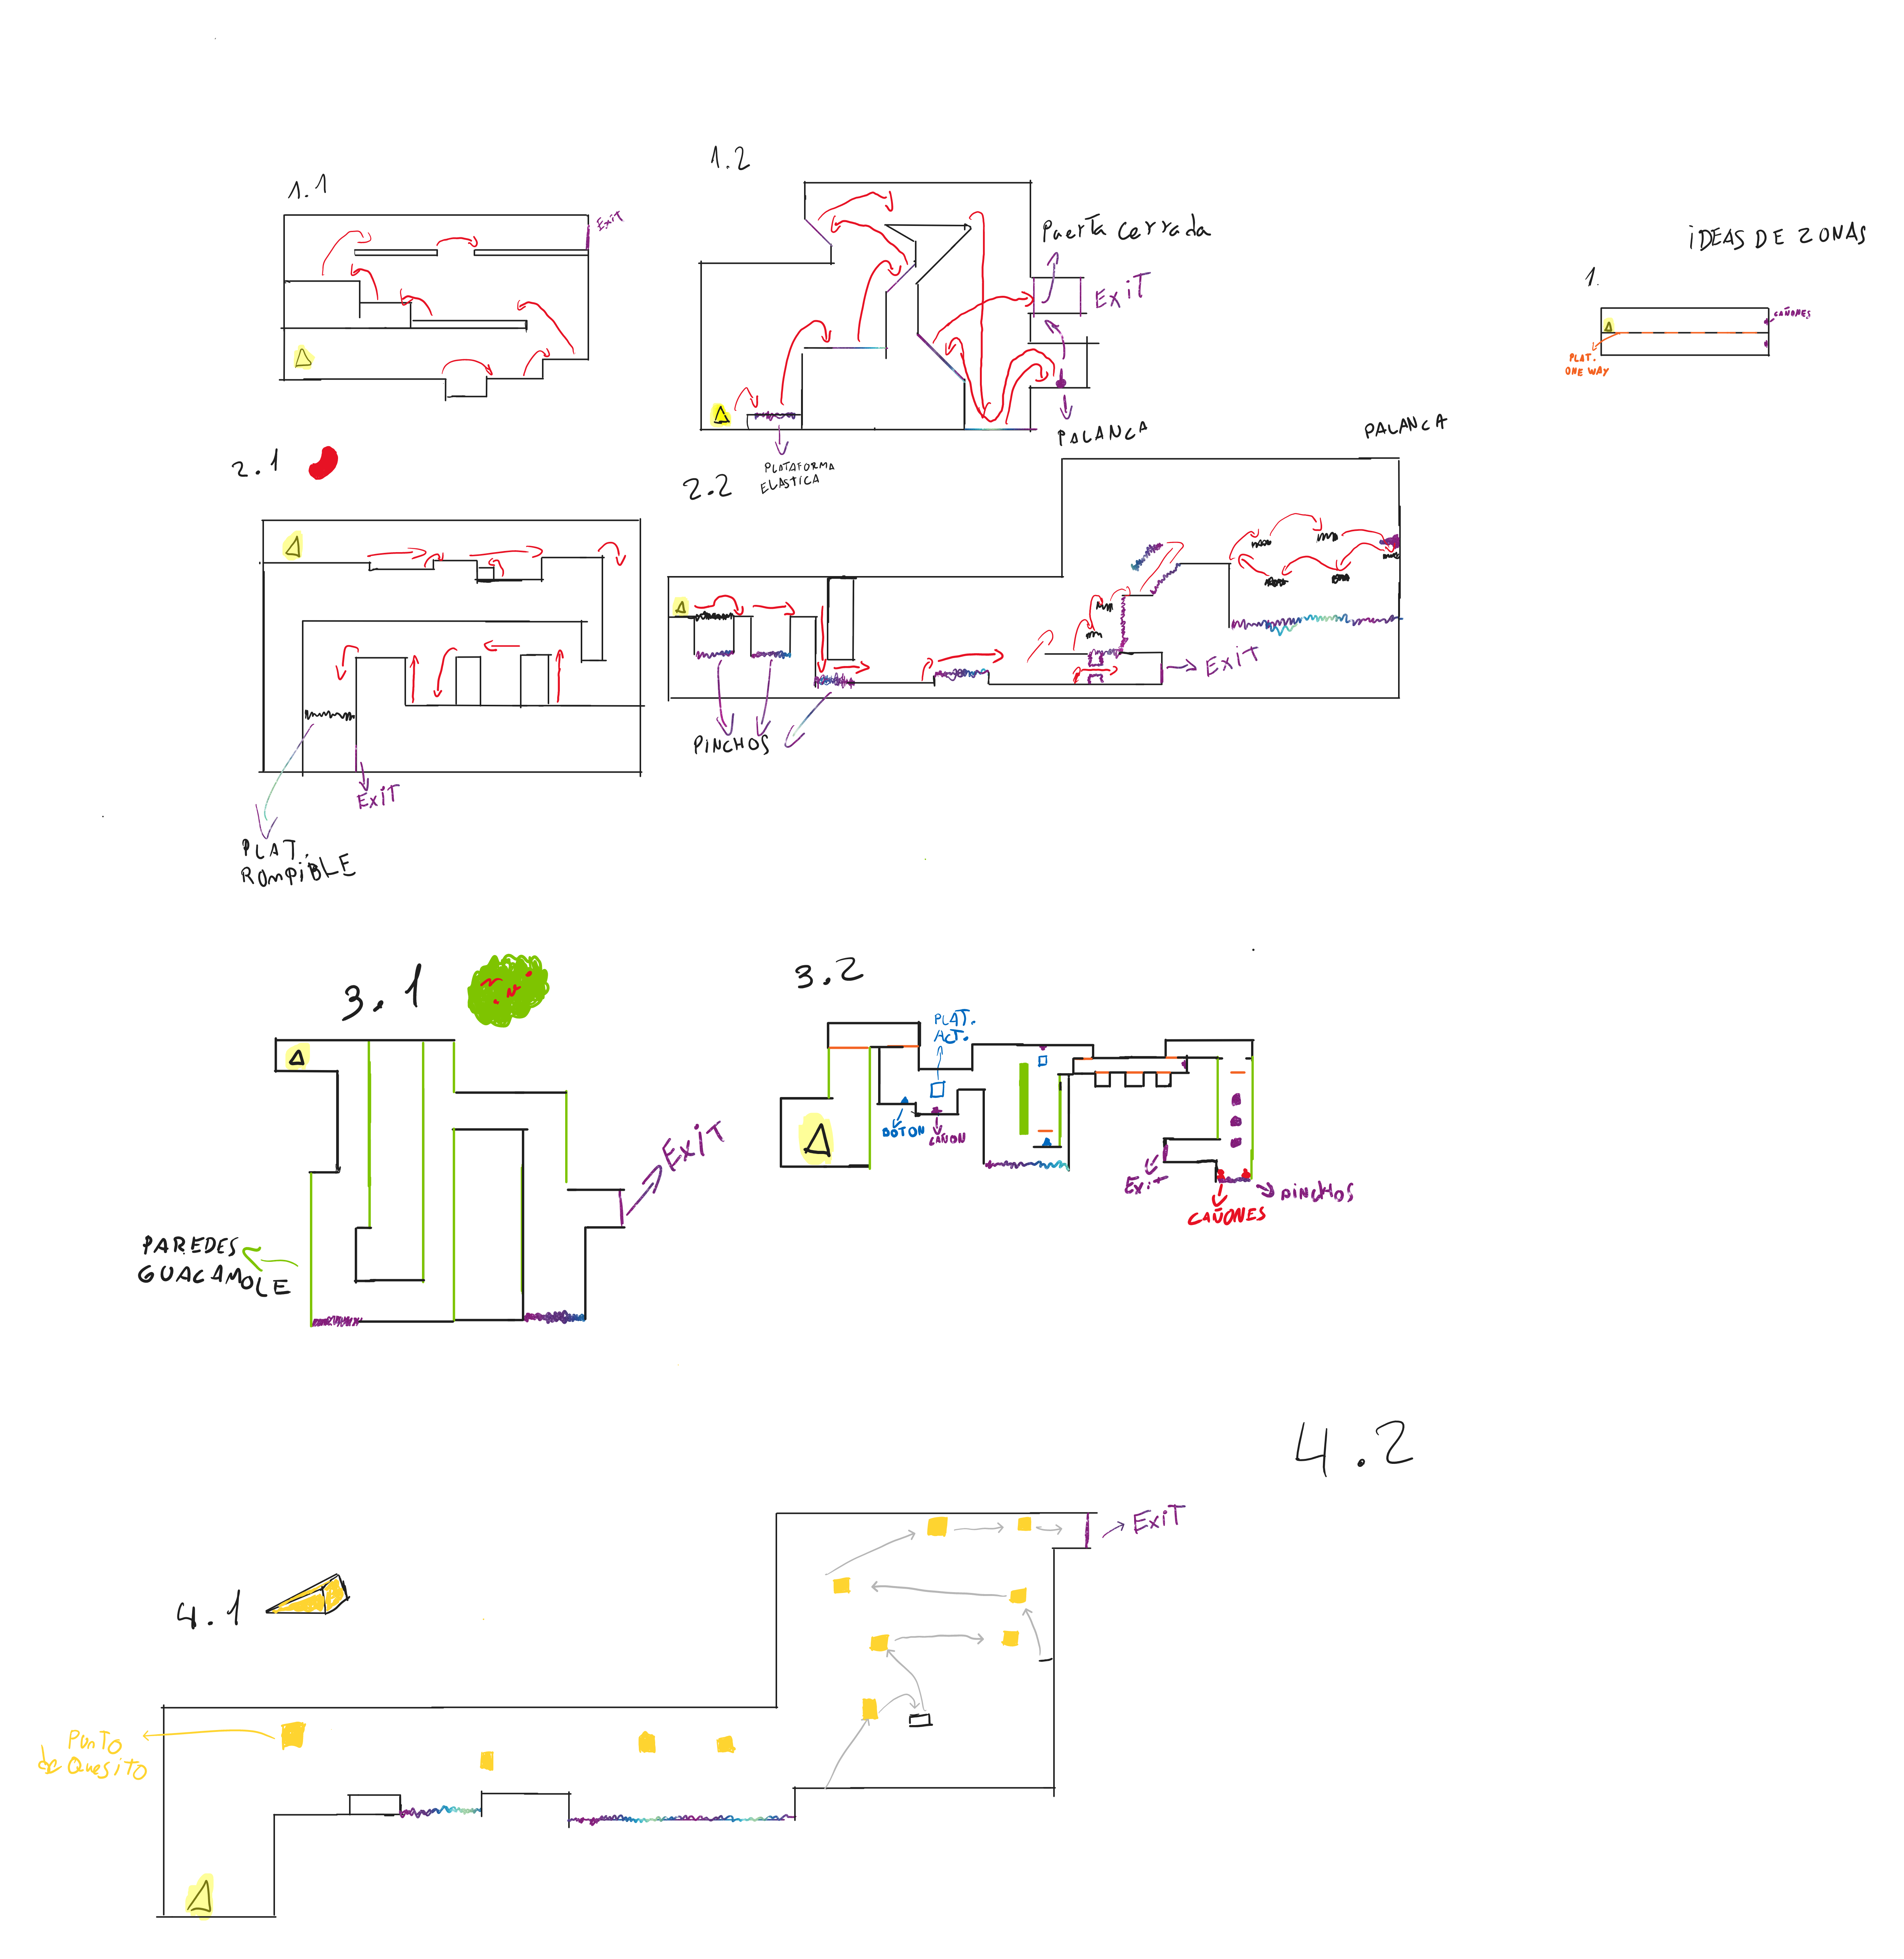 1.1
Exit
1.2
Puerta cerrada
EXIT
PALANCA
PLATAFORMA
ELASTICA
IDEAS DE ZONAS
1.
CAÑONES
PLAT.
ONE WAY
2.1
EXIT
PLAT.
ROMPIBLE
2.2
PALANCA
EXIT
PINCHOS
3.1
EXIT
PAREDES
GUACAMOLE
3.2
PLAT.
ACT.
BOTON
CAÑON
Exit
PINCHOS
CAÑONES
4.2
4.1
EXIT
Punto
de Quesito